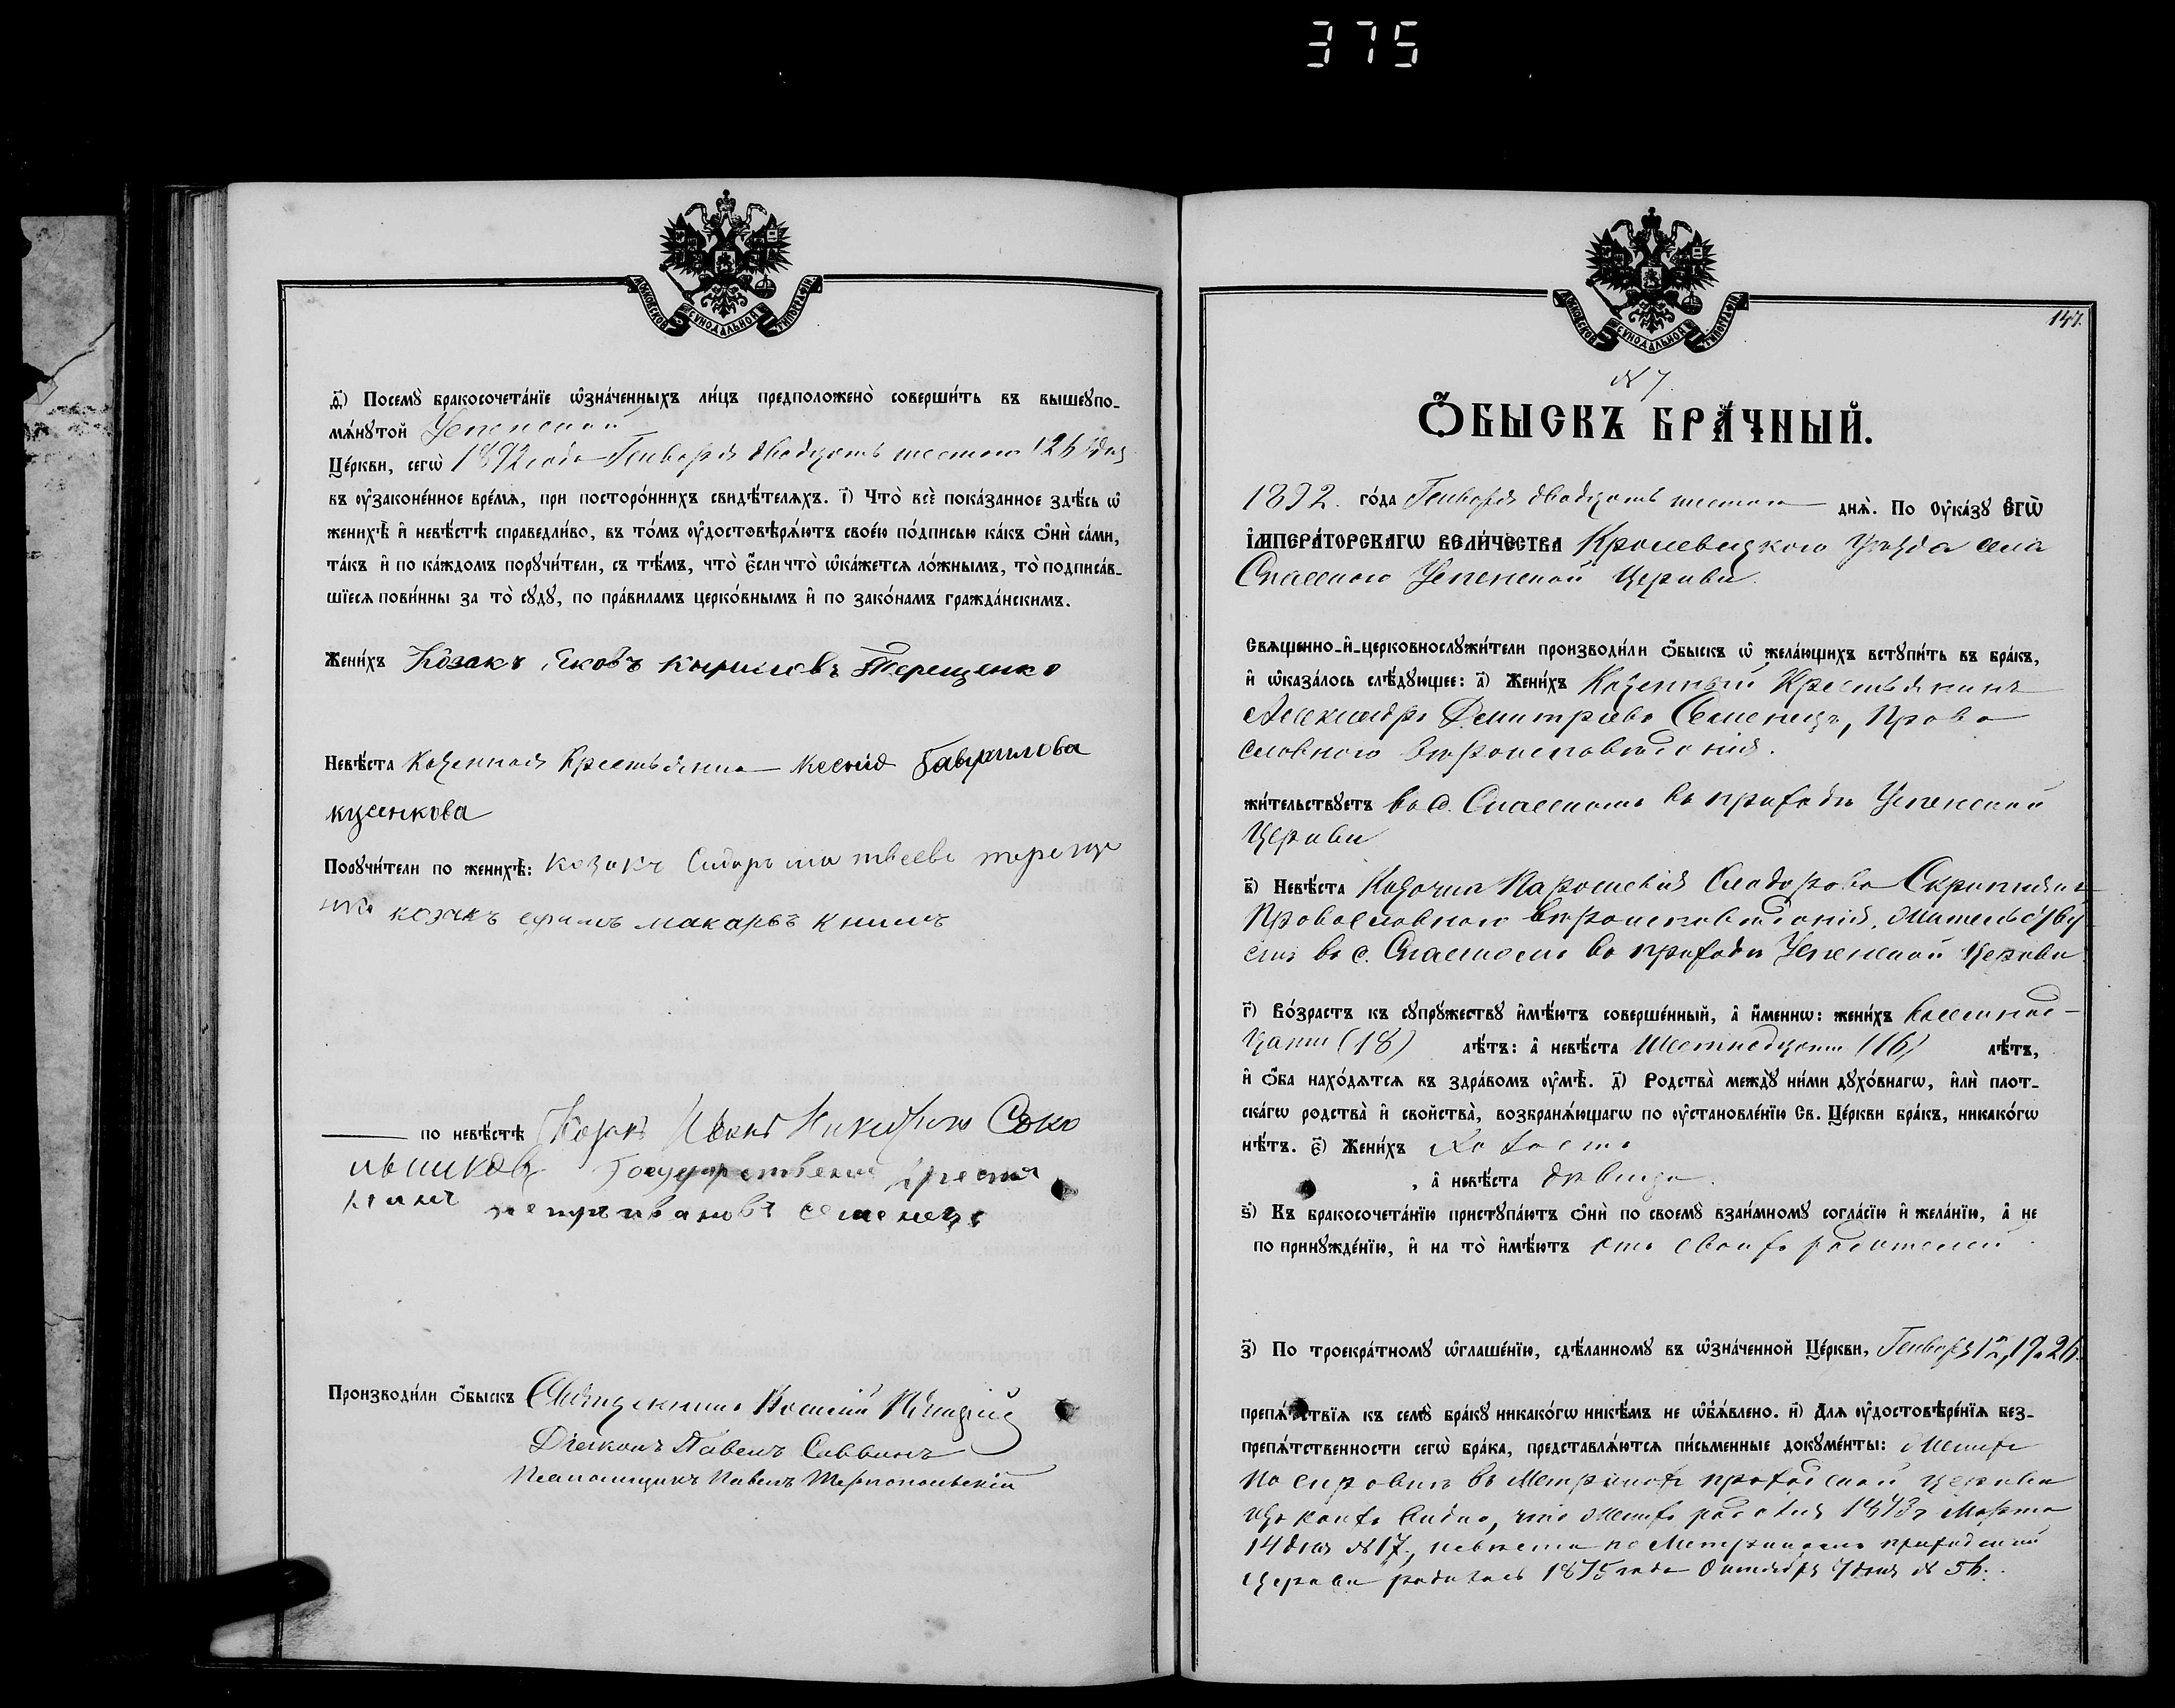 375
МОСКОВСКОЙ СУНОДАЛЬНОЙ ТИПОГРАФІИ
д҃і) Посемꙋ̀ бракосочета́нїе ѡ҆зна́ченныхъ ли́цъ предположено̀ соверши́ть въ вышеꙋпо-
мѧ́нꙋтой Успенской
Це́ркви, сегѡ̀ 1892 года Генваря двадцать шестого (26) дня
въ ᲂу҆законе́нное вре́мѧ, при посторо́ннихъ свидѣ́телѧхъ. і҃) Что̀ всѐ пока́занное здѣ́сь ѡ҆
женихѣ̀ и҆ невѣ́стѣ справедли́во, въ то́мъ ᲂу҆достовѣрѧ́ютъ свое́ю по́дписью ка́къ ѻ҆нѝ са́ми,
та́къ и҆ по ка́ждомъ порꙋчи́тели, съ тѣ́мъ, что̀ є҆́сли что̀ ѡ҆ка́жется ло́жнымъ, то̀ подписа́в-
шїеся пови́нны за то̀ сꙋдꙋ̀, по пра́виламъ церко́внымъ и҆ по зако́намъ гражда́нскимъ.
Жени́хъ Козакъ Яковъ Кириловъ Терещенко
Невѣ́ста Казенная Крестьянка Ксенія Гаврилова
кусенкова
Порꙋчи́тели по женихѣ̀: козакъ Сидоръ матвеевъ тереще
нко козакъ ефимъ макаръв книшъ
по невѣ́стѣ Козакъ Иванъ Никифоро Соко
льниковъ Государственій крестья
нинъ петръ ивановъ семенецъ
Производи́ли ѻ҆́быскъ Священникъ Василій
Діаконъ Павелъ Саввинъ
Псаломщикъ Павелъ Тернопольскій
МОСКОВСКОЙ СУНОДАЛЬНОЙ ТИПОГРАФІИ
147.
№ 7.
Ѻ҆́БЫСКЪ БРА́ЧНЫЙ.
1892. го́да Генваря двадцать шестого днѧ̀. По Оу҆ка́зꙋ Є҆ГѠ̀
І҆МПЕРА́ТОРСКАГѠ ВЕЛИ́ЧЕСТВА Кролевецкого Уѣзда села
Спаского Успенской Церкви.
Свѧщенно-и҆-церковнослꙋжи́тели производи́ли ѻ҆́быскъ ѡ҆ жела́ющихъ встꙋпи́ть въ бра́къ,
и҆ ѡ҆каза́лось слѣ́дꙋющее: а҃) Жени́хъ Казенный Крестьянинъ
Александръ Димитріевъ Семенецъ, Право
славного вѣроисповѣданія.
жи́тельствꙋетъ въ с. Спаскомъ въ приходѣ Успенской
Церкви
в҃) Невѣ́ста Козачка Параскевія Сидорова
Православного вѣроисповѣданія, жительству
етъ въ с. Спаскомъ въ приходѣ Успенской Церкви
г҃) Во́зрастъ къ сꙋпрꙋ́жествꙋ и҆мѣ́ютъ соверше́нный, а҆ и҆́меннѡ: жени́хъ восемнад-
цати (18) лѣ́тъ: а҆ невѣ́ста Шестнадцати (16) лѣ́тъ,
и҆ ѻ҆́ба нахо́дѧтся въ здра́вомъ ᲂу҆мѣ̀. д҃) Родства̀ междꙋ̀ ни́ми дꙋхо́внагѡ, и҆лѝ плот-
ска́гѡ родства̀ и҆ сво́йства̀, возбранѧ́ющагѡ по ᲂу҆становле́нїю Св. Це́ркви бра́къ, никако́гѡ
нѣ́тъ. є҃) Жени́хъ Холостъ
, а҆ невѣ́ста дѣвица.
ѕ҃) Къ бракосочета́нїю пристꙋпа́ютъ ѻ҆нѝ по своемꙋ̀ взаи́мномꙋ согла́сїю и҆ жела́нїю, а҆ не
по принꙋжде́нїю, и҆ на то̀ и҆мѣ́ютъ отъ своихъ родителей.
з҃) По троекра́тномꙋ ѡ҆глаше́нїю, сдѣ́ланномꙋ въ ѡ҆зна́ченной Це́ркви, Генваря 12, 19 и 26.
препѧ́тствїѧ къ семꙋ̀ бра́кꙋ никако́гѡ никѣ́мъ не ѡ҆бъѧ́влено. и҃) Длѧ ᲂу҆достовѣре́нїѧ без-
препѧ́тственности сегѡ̀ бра́ка, представлѧ́ются пи́сьменные докꙋме́нты: Женихъ
По справкѣ въ Метрикахъ приходской церкви
изъ коихъ видно, что женихъ родился 1873 г. Марта
14 дня № 17, невѣста по Метрикамъ приходской
Церкви родилась 1875 года Октября 7 дня № 56.